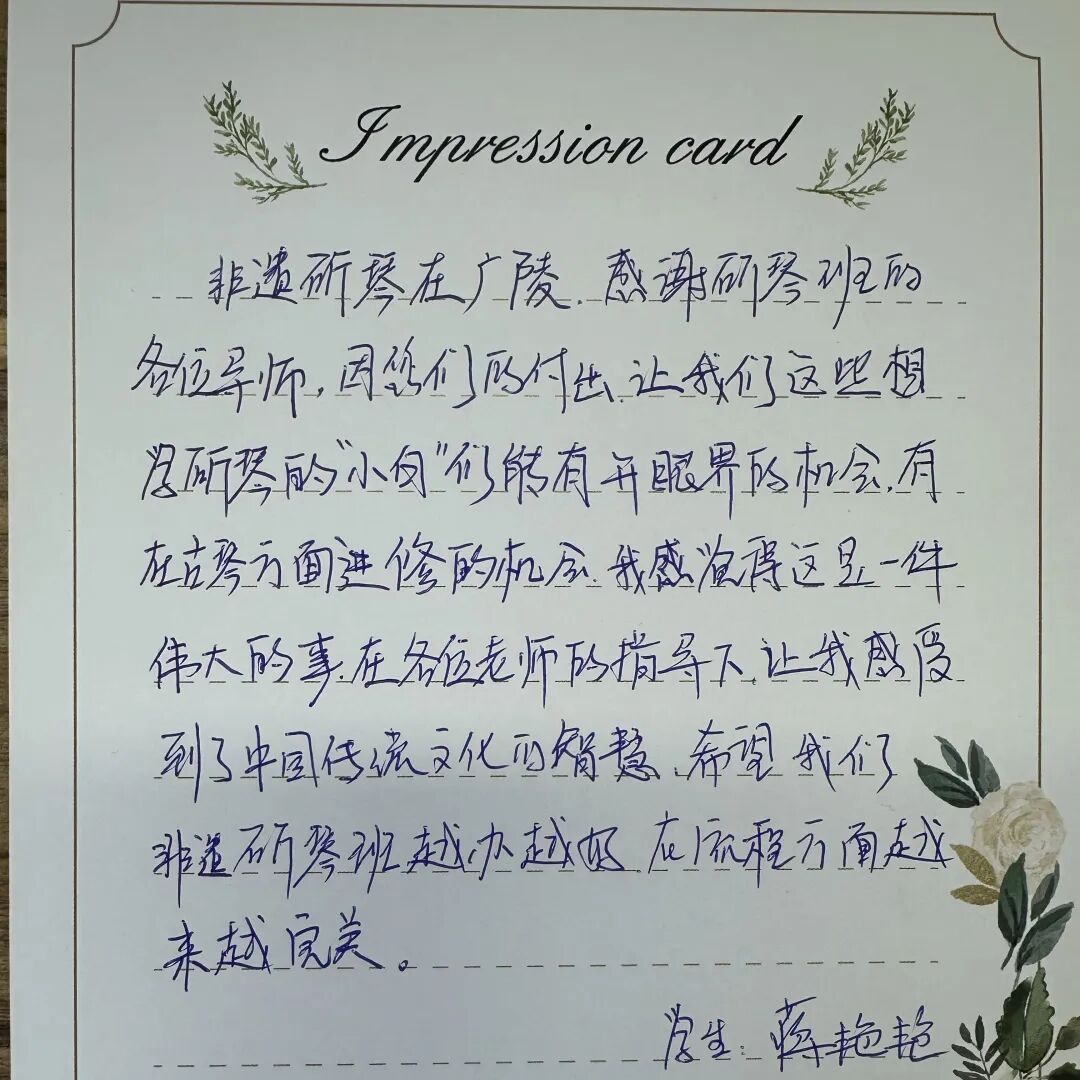 Impression card
非遗斫琴在广陵.感谢斫琴班的
各位导师,因您们的付出.让我们这些想
学斫琴的"小白"们能有开眼界的机会.有
在古琴方面进修的机会.我感觉得这是一件
伟大的事.在各位老师的指导下.让我感受
到了中国传统文化的智慧.希望我们
非遗斫琴班越办越好.在流程方面越
来越完美。
学生:蒋艳艳